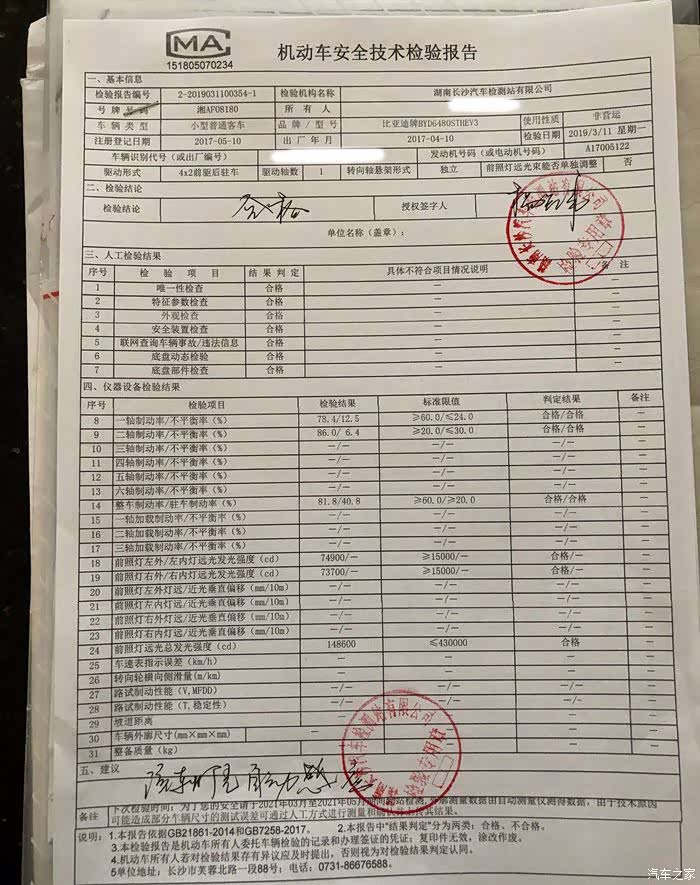 CMA
151805070234
机动车安全技术检验报告
一、基本信息
检验报告编号 2-2019031100354-1 检验机构名称 湖南长沙汽车检测站有限公司
号牌号码 湘AF08180 所有人
车辆类型 小型普通客车 品牌/型号 比亚迪牌BYD6480STHEV3 使用性质 非营运
注册登记日期 2017-05-10 出厂年月 2017-04-10 检验日期 2019/3/11 星期一
车辆识别代号（或出厂编号） 发动机号码（或电动机号码） A17005122
驱动形式 4x2前驱后驻车 驱动轴数 1 转向轴悬架形式 独立 前照灯远光束能否单独调整 否
二、检验结论
检验结论 合格 授权签字人
单位名称（盖章）：
三、人工检验结果
序号 检验项目 结果判定 具体不符合项目情况说明 备注
1 唯一性检查 合格 — —
2 特征参数检查 合格 — —
3 外观检查 合格 — —
4 安全装置检查 合格 — —
5 联网查询车辆事故/违法信息 合格 — —
6 底盘动态检验 合格 — —
7 底盘部件检查 合格 — —
四、仪器设备检验结果
序号 检验项目 检验结果 标准限值 判定结果 备注
8 一轴制动率/不平衡率（%） 78.4/12.5 ≥60.0/≤24.0 合格/合格 —
9 二轴制动率/不平衡率（%） 86.0/ 6.4 ≥20.0/≤30.0 合格/合格 —
10 三轴制动率/不平衡率（%） —/— —/— —/— —
11 四轴制动率/不平衡率（%） —/— —/— —/— —
12 五轴制动率/不平衡率（%） —/— —/— —/— —
13 六轴制动率/不平衡率（%） —/— —/— —/— —
14 整车制动率/驻车制动率（%） 81.8/40.8 ≥60.0/≥20.0 合格/合格 —
15 一轴加载制动率/不平衡率（%） —/— —/— —/— —
16 二轴加载制动率/不平衡率（%） —/— —/— —/— —
17 三轴加载制动率/不平衡率（%） —/— —/— —/— —
18 前照灯左外/左内灯远光发光强度（cd） 74900/— ≥15000/— 合格/— —
19 前照灯右外/右内灯远光发光强度（cd） 73700/— ≥15000/— 合格/— —
20 前照灯左外灯远/近光垂直偏移（mm/10m） —/— —/— —/— —
21 前照灯左内灯远/近光垂直偏移（mm/10m） —/— —/— —/— —
22 前照灯右外灯远/近光垂直偏移（mm/10m） —/— —/— —/— —
23 前照灯右内灯远/近光垂直偏移（mm/10m） —/— —/— —/— —
24 前照灯远光总发光强度（cd） 148600 ≤430000 合格 —
25 车速表指示误差（km/h） — — — —
26 转向轮横向侧滑量（m/km） — — — —
27 路试制动性能（V,MFDD） —/— —/— —/— —
28 路试制动性能（T,稳定性） —/— —/— —/— —
29 坡道距离 — — — —
30 车辆外廓尺寸（mm×mm×mm） — — — —
31 整备质量（kg） — — — —
五、建议
备注 下次检验时间：为了您的安全请于2021年03月至2021年05月 检测，外廓测量数据由自动测量仪测得数据，由于技术原因
可能造成部分车辆尺寸的测试误差可通过人工方式进行测量
说明：1.本报告依据GB21861-2014和GB7258-2017。 2.本报告中“结果判定”分为两类：合格、不合格。
3.本检验报告是机动车所有人委托车辆检验的记录和办理签证的凭证；复印件无效，涂改作废。
4.机动车所有人若对检验结果存有异议应及时提出，否则视为对检验结果判定认同。
5单位地址：长沙市芙蓉北路一段88号；电话：0731-86676588。
检验专用章
检验专用章
汽车之家